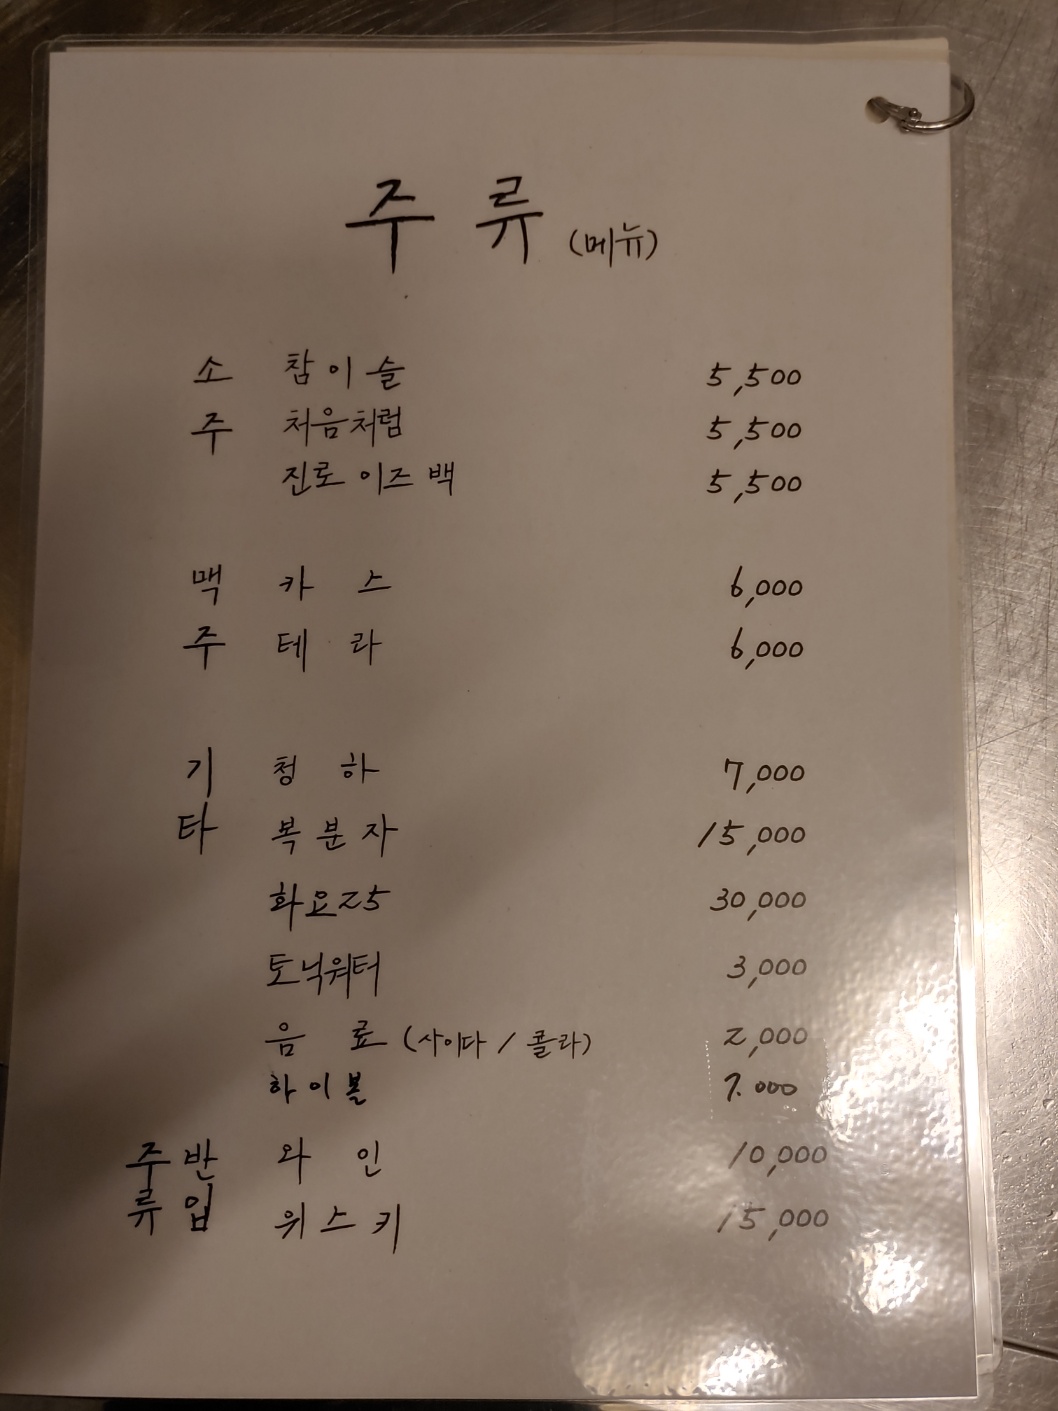 주 류 (메뉴)
소 참이슬 5,500
주 처음처럼 5,500
진로 이즈 백 5,500
맥 카 스 6,000
주 테 라 6,000
기 청 하 7,000
타 복 분 자 15,000
화요25 30,000
토닉워터 3,000
음 료 (사이다 / 콜라) 2,000
하이볼 7.000
주 반 와 인 10,000
류 입 위 스 키 15,000